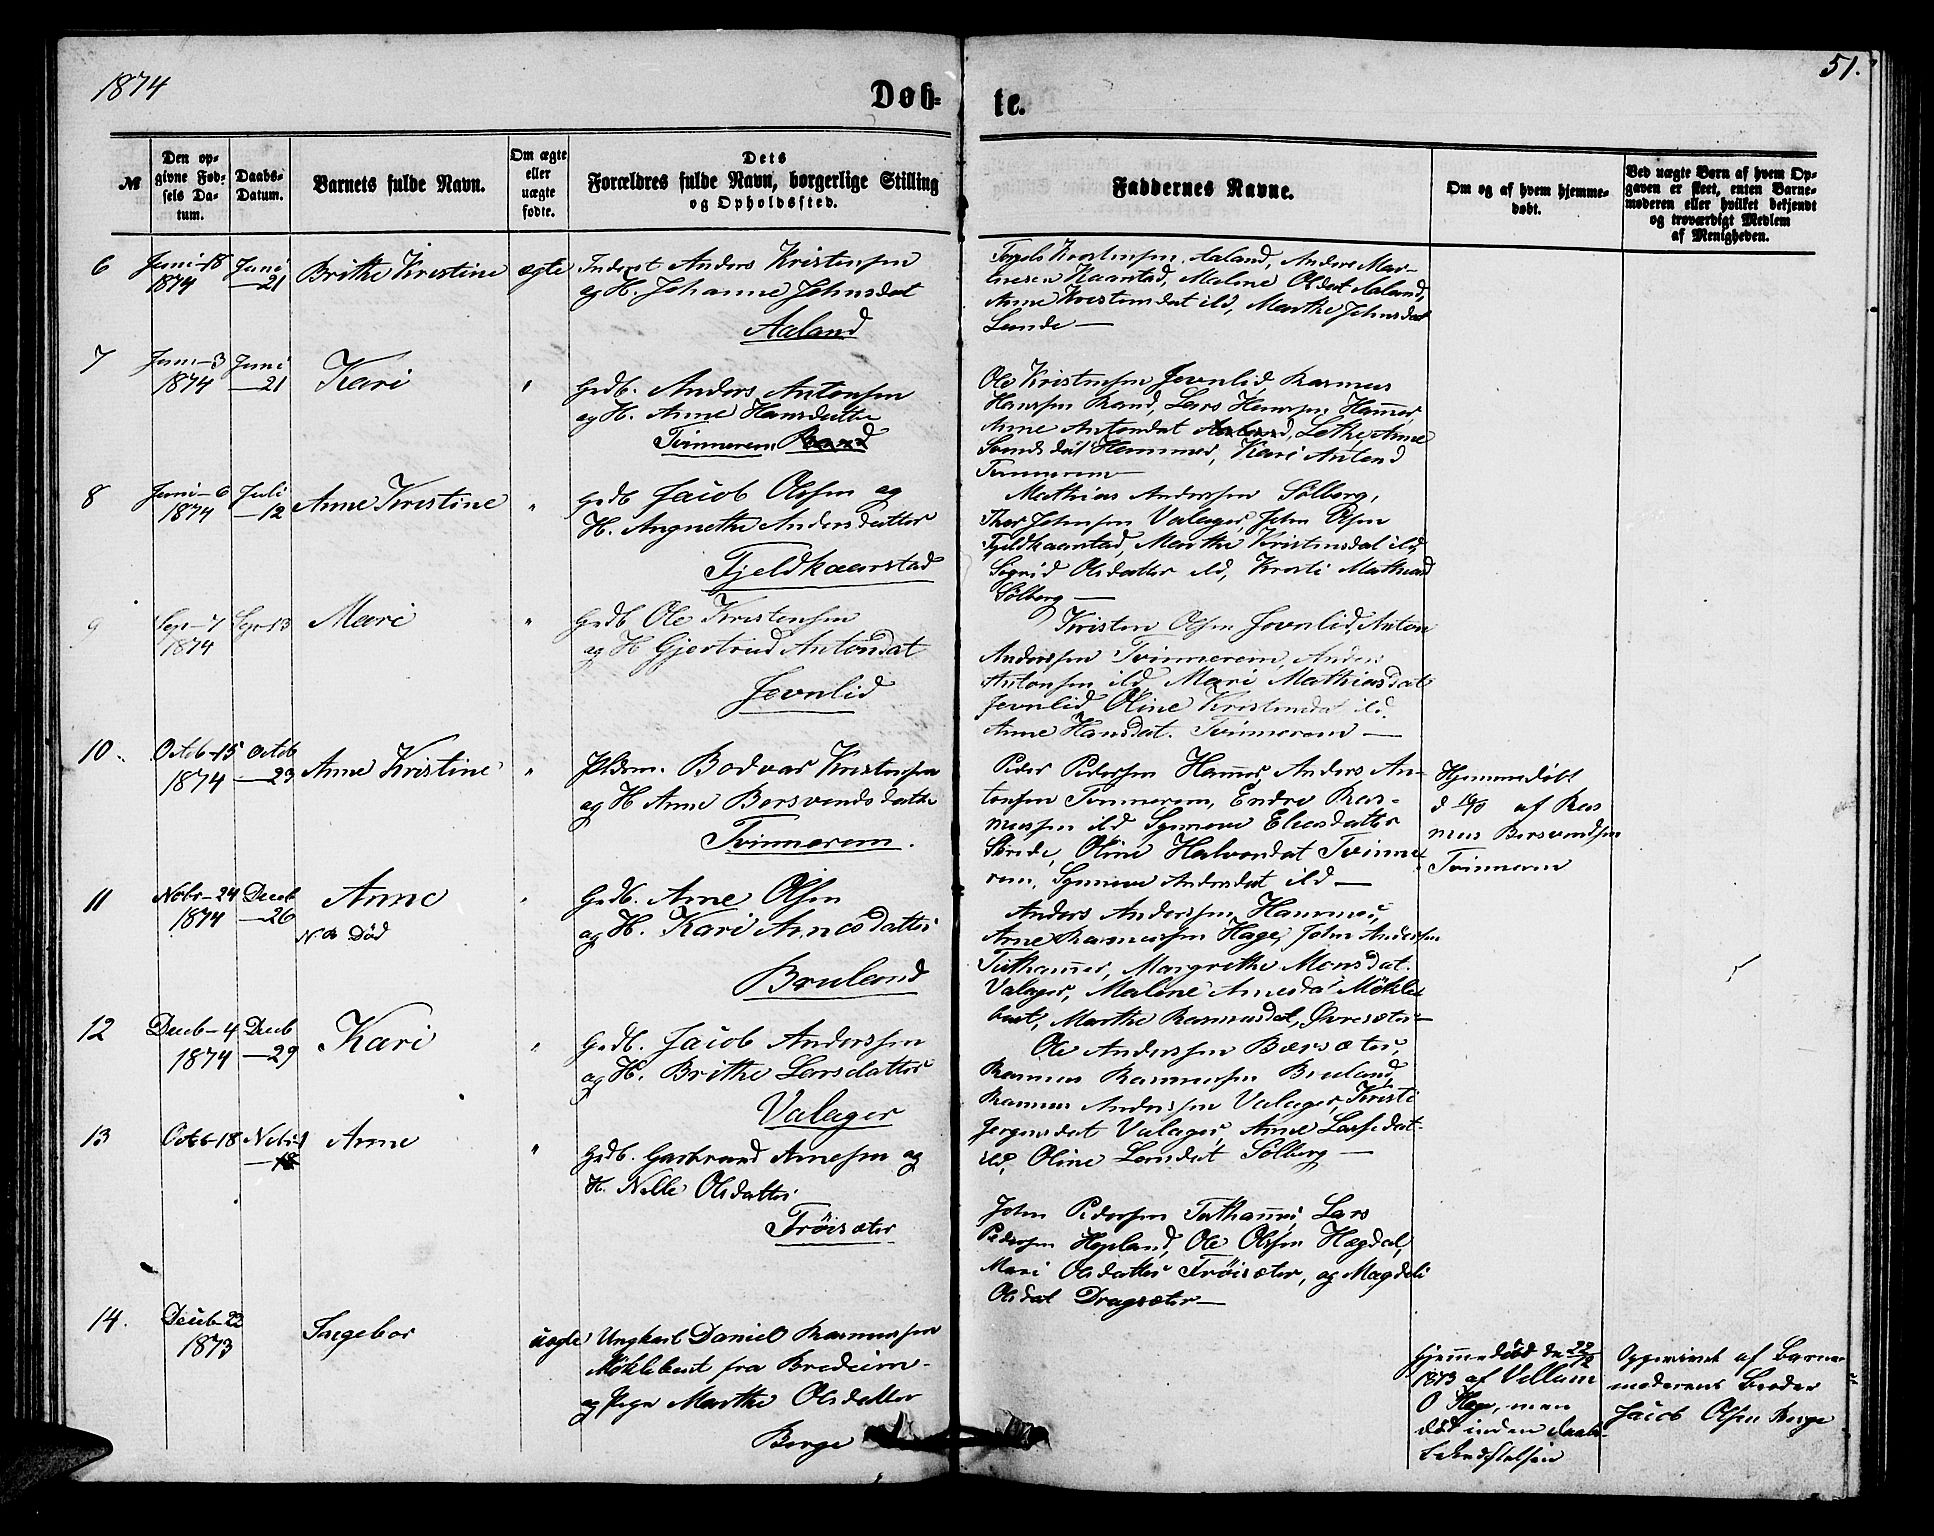 1874
51.
Døb-
te.
№
Den op-
givne Fød-
sels Da-
tum.
Daabs-
Datum.
Barnets fulde Navn.
Om ægte
eller
uægte
fødte.
Dets
Forældres fulde Navn, borgerlige Stilling
og Opholdssted.
Faddernes Navne.
Om og af hvem hjemme-
døbt.
Ved uægte Børn af hvem Op-
gaven er skeet, enten Barne-
moderen eller hvilket bekjendt
og troværdigt Medlem
af Menigheden.
6
Juni-18
1874
Juni
—21
Brithe Kristine
ægte
Inderst Anders Kristensen
og H. Johanne Johnsdat
Aaland
Kristensen Aaland, Anders Mar-
Kaarstad, Malene Olsdat Aaland,
Anne Kristensdat ild, Marthe Johnsdat
Lunde —
7
Juni-3
1874
Juni
—21
Kari
"
Grdb. Anders Antonsen
og H. Anne Hansdatter
Tvinnerem Rand
Ole Kristensen Jevnlid, Rasmus
Hanssen Rand, Lars Hanssen Hammer
Anne Antondat Lothe, Anne
Hammer, Kari Antond
Tvinnerem —
8
Juni-6
1874
Juli
—12
Anne Kristine
"
Grdb Jacob Olssen og
H. Angnethe Andersdatter
Fjeldkaarstad
Mathias Anderssen Sölberg,
Thor Johnsen Valager, John Olsen
Fjeldkaarstad, Marthe Kristensdat ild,
Sigrid Olsdatter ild, Kristi Mathiasd
Sölberg —
9
Sep-7
1874
Sep-13
Mari
"
Grdb Ole Kristensen
og H Gjertrud Antondat
Jevnlid
Kristen Olsen Jevnlid, Anton
Anderssen Tvinnerem, Anders
Antonsen ild Mari Mathiasdat
Jevnlid Oline Kristensdat ild.
Anne Hansdat. Tvinnerem —
10.
Octb-15
1874
Octb
—23
Anne Kristine
"
Bodvar Kristensen
og H Anne Borsvendsdatter
Tvinnerem.
Peder Pedersen Hammer, Anders An-
tonsen Tvinnerem, Endre Ras-
mussen ild Synneve Eliasdatter
Skrede, Oline Halvordat Tvinne-
rem, Synneve Andersdat ild —
Hjemmedøbt
d 16/10 af Ras
mus Borsvendsen
Tvinnerem
11
Nobr-24
1874
Decb
—26
Anne
Død
"
Grdb. Arne Olsen
og H. Kari Arnesdatter
Bruland
Anders Anderssen Hammer,
Arne Rasmussen Hage, John Anderssen
Tuthammer, Margrethe Monsdat.
Valager, Malene Arnesda Møkle
bust, Marthe Rasmusdat, Øvresæter —
12
Decb-4
1874
Decb
—29
Kari
"
Grdb. Jacob Anderssen
og H. Brithe Larsdatter
Valager
Ole Anderssen Bærsæter,
Rasmus Rasmussen Bruland,
Rasmus Anderssen Valager, Kristi
Jørgensdat Valager, Anne Lassedat
ild, Oline Larsdat Sölberg —
13
Octb-18
Nobr-1
—18
Anne
"
Grdb. Garbrand Arnesen og
H. Nille Olsdatter
Tröisæter
John Pedersen Tuthammer, Lars
Pedersen Hopland, Ole Olssen Hægdal,
Mari Olsdatter Tröisæter, og Magdeli
Olsdat Dragsæter —
14.
Decb-22
1873
Ingebor
uægte
Ungkarl Daniel Rasmussen
Møklebust fra Bredeim
og Pige Marthe Olsdatter
Berge
Hjemmedøbt den 22/12
1873 af Villum
O Hage, men
død inden daabs-
bekræftelsen
Opgivet af Barne-
moderens Broder
Jacob Olsen Berge